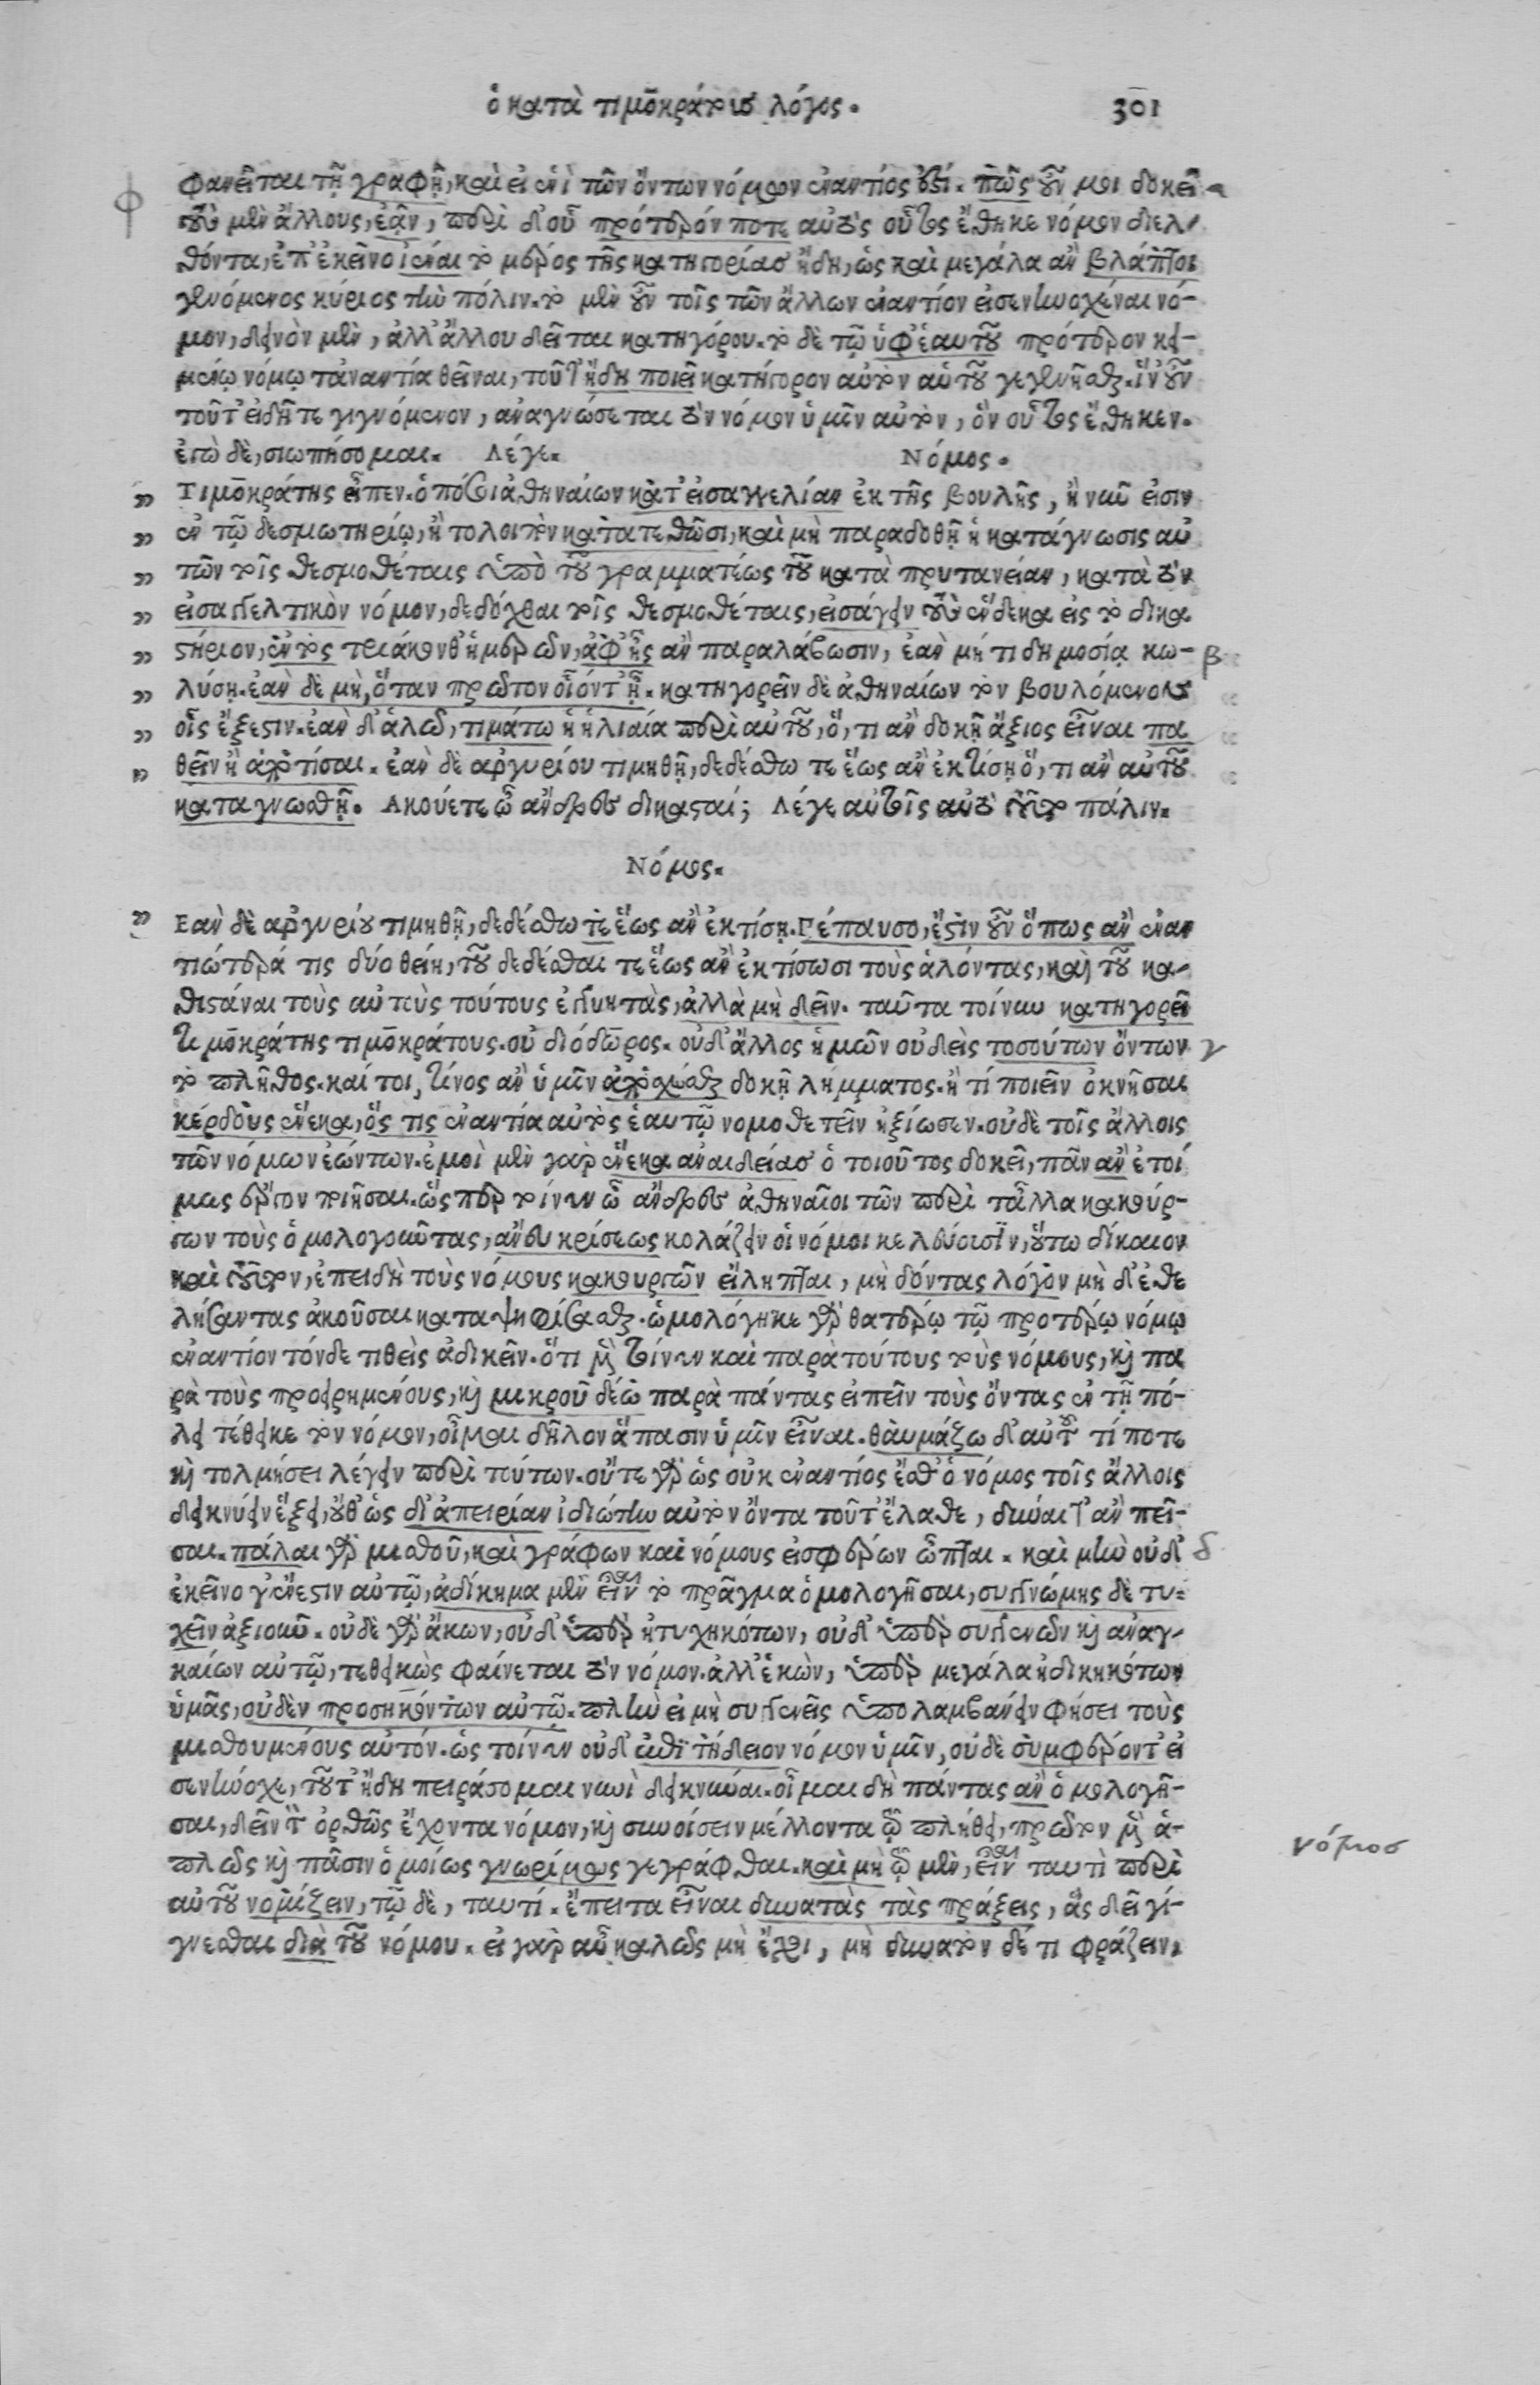 ὁ κατὰ τιμοκράτους λόγος. 301
φανεῖται τῇ γραφῇ, καὶ εἰ ἑνὶ τῶν ὄντων νόμων ἐναντίος ἐστί. πῶς οὖν μοι δοκεῖ α
τοὺς μὲν ἄλλους, ἐᾶν, περὶ δ' οὗ πρότερόν ποτε αὐτὸς οὗτος ἔθηκε νόμον διελ-
θόντα, ἐπ' ἐκεῖνο ἰέναι τὸ μέρος τῆς κατηγορίας ἤδη, ὡς καὶ μεγάλα ἂν βλάπτοι
γενόμενος κύριος τὴν πόλιν. τὸ μὲν οὖν τοῖς τῶν ἄλλων ἐναντίον εἰσενηνοχέναι νό-
μον, δεινὸν μὲν, ἀλλ' ἄλλου δεῖται κατηγόρου. τὸ δὲ τῷ ὑφ' ἑαυτοῦ πρότερον κει-
μένῳ νόμῳ τἀναντία θεῖναι, τοῦτ' ἤδη ποιεῖ κατήγορον αὐτὸν αὑτοῦ γεγενῆσθαι. ἵν' οὖν
τοῦτ' εἰδῆτε γιγνόμενον, ἀναγνώσεται τὸν νόμον ὑμῖν αὐτὸν, ὃν οὗτος ἔθηκεν.
ἐγὼ δὲ, σιωπήσομαι. Λέγε. Νόμος.
Τιμοκράτης εἶπεν. ὁπόσοι ἀθηναίων κατ' εἰσαγγελίαν ἐκ τῆς βουλῆς, ἢ νῦν εἰσιν
ἐν τῷ δεσμωτηρίῳ, ἢ τολοιπὸν κατατεθῶσι, καὶ μὴ παραδοθῇ ἡ κατάγνωσις αὐ
τῶν τοῖς θεσμοθέταις ὑπὸ τοῦ γραμματέως τοῦ κατὰ πρυτανείαν, κατὰ τὸν
εἰσαγγελτικὸν νόμον, δεδόχθαι τοῖς θεσμοθέταις, εἰσάγειν τοὺς ἕνδεκα εἰς τὸ δικα
στήριον, ἐντὸς τριάκονθ' ἡμερῶν, ἀφ' ἧς ἂν παραλάβωσιν, ἐὰν μή τι δημοσίᾳ κω- β
λύσῃ. ἐὰν δὲ μὴ, ὅταν πρῶτον οἷόντ' ᾖ. κατηγορεῖν δὲ ἀθηναίων τὸν βουλόμενον
οἷς ἔξεστιν. ἐὰν δ' ἁλῷ, τιμάτω ἡ ἡλιαία περὶ αὐτοῦ, ὅ, τι ἂν δοκῇ ἄξιος εἶναι πα
θεῖν ἢ ἀποτίσαι. ἐὰν δὲ ἀργυρίου τιμηθῇ, δεδέσθω τε ἕως ἂν ἐκτίσῃ ὅ, τι ἂν αὐτοῦ
καταγνωσθῇ. Ακούετε ὦ ἄνδρες δικασταί; Λέγε αὐτοῖς αὐτὸ τοῦτο πάλιν.
Νόμος.
Εὰν δὲ ἀργυρίου τιμηθῇ, δεδέσθω τὲ ἕως ἂν ἐκτίσῃ. Πέπαυσο, ἔστιν οὖν ὅπως ἂν ἐναν
τιώτερα τις δύο θείη, τοῦ δεδέσθαι τε ἕως ἂν ἐκτίσωσι τοὺς ἁλόντας, καὶ τοῦ κα-
θιστάναι τοὺς αὐτοὺς τούτους ἐγγυητὰς, ἀλλὰ μὴ δεῖν. ταῦτα τοίνυν κατηγορεῖ
τιμοκράτης τιμοκράτους. οὐ διόδωρος. οὐδ' ἄλλος ἡμῶν οὐδεὶς τοσούτων ὄντων γ
τὸ πλῆθος. καίτοι, τίνος ἂν ὑμῖν ἀποσχέσθαι δοκῇ λήμματος. ἢ τί ποιεῖν ὀκνῆσαι
κέρδους ἕνεκα, ὅς τις ἐναντία αὐτὸς ἑαυτῷ νομοθετεῖν ἠξίωσεν. οὐδὲ τοῖς ἄλλοις
τῶν νόμων ἐώντων. ἐμοὶ μὲν γὰρ ἕνεκα ἀναιδείας ὁ τοιοῦτος δοκεῖ, πᾶν ἂν ἑτοί
μως ἔργον ποιῆσαι. ὥσπερ τοίνυν ὦ ἄνδρες ἀθηναῖοι τῶν περὶ τἆλλα κακούρ-
γων τοὺς ὁμολογοῦντας, ἄνευ κρίσεως κολάζειν οἱ νόμοι κελεύουσιν, οὕτω δίκαιον
καὶ τοῦτον, ἐπειδὴ τοὺς νόμους κακουργῶν εἴληπται, μὴ δόντας λόγον μὴ δ' ἐθε
λήσαντας ἀκοῦσαι καταψηφίσασθαι. ὡμολόγηκε γὰρ θατέρῳ τῷ προτέρῳ νόμῳ
ἐναντίον τόνδε τιθεὶς ἀδικεῖν. ὅτι μὲν τοίνυν καὶ παρὰ τούτους τοὺς νόμους, καὶ πα
ρὰ τοὺς προειρημένους, καὶ μικροῦ δέω παρὰ πάντας εἰπεῖν τοὺς ὄντας ἐν τῇ πό-
λει τέθεικε τὸν νόμον, οἶμαι δῆλον ἅπασιν ὑμῖν εἶναι. θαυμάζω δ' αὐτοῦ τί ποτε
καὶ τολμήσει λέγειν περὶ τούτων. οὔτε γὰρ ὡς οὐκ ἐναντίος ἔσθ' ὁ νόμος τοῖς ἄλλοις
δεικνύειν ἕξει, οὔθ' ὡς δι' ἀπειρίαν ἰδιώτην αὐτὸν ὄντα τοῦτ' ἔλαθε, δύναιτ' ἂν πεῖ-
σαι. πάλαι γὰρ μισθοῦ, καὶ γράφων καὶ νόμους εἰσφέρων ὦπται. καὶ μὴν οὐδ' δ
ἐκεῖνο γ' ἔνεστιν αὐτῷ, ἀδίκημα μὲν εἶναι τὸ πρᾶγμα ὁμολογῆσαι, συγγνώμης δὲ τυ-
χεῖν ἀξιοῦν. οὐδὲ γὰρ ἄκων, οὐδ' ὑπὲρ ἠτυχηκότων, οὐδ' ὑπὲρ συγγενῶν καὶ ἀναγ-
καίων αὐτῷ, τεθεικὼς φαίνεται τὸν νόμον. ἀλλ' ἑκὼν, ὑπὲρ μεγάλα ἠδικηκότων
ὑμᾶς, οὐδὲν προσηκόντων αὐτῷ. πλὴν εἰ μὴ συγγενεῖς ὑπολαμβάνειν φήσει τοὺς
μισθουμένους αὐτόν. ὡς τοίνυν οὐδ' ἐπιτήδειον νόμον ὑμῖν, οὐδὲ συμφέροντ' εἰ
σενήνοχε, τοῦτ' ἤδη πειράσομαι νυνὶ δεικνύναι. οἶμαι δὴ πάντας ἂν ὁμολογῆ-
σαι, δεῖν τὸν ὀρθῶς ἔχοντα νόμον, καὶ συνοίσειν μέλλοντα τῷ πλήθει, πρῶτον μὲν ἁ-
πλῶς καὶ πᾶσιν ὁμοίως γνωρίμως γεγράφθαι. καὶ μὴ τῷ μὲν, εἶναι ταυτὶ περὶ
νόμοσ
αὐτοῦ νομίζειν, τῷ δὲ, ταυτί. ἔπειτα εἶναι δυνατὰς τὰς πράξεις, ἃς δεῖ γί-
γνεσθαι διὰ τοῦ νόμου. εἰ γὰρ αὖ καλῶς μὴ ἔχοι, μὴ δυνατὸν δέ τι φράζειν,